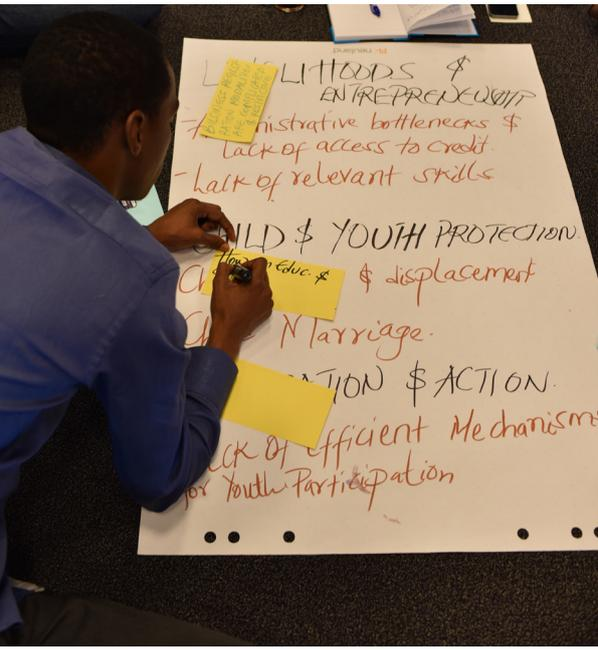 neuland
L LIHOODS &
ENTREPRENEUSHIP
- A nistrative bottlenecks $
Lack of access to credit.
- Lack of relevant skills
BUSINESS
ARE
ILD $ YOUTH PROTECTION.
Educ. $
Ch $ displacement
Ch Marriage.
ATION $ ACTION.
ack of Efficient Mechanisms
for Youth Participation